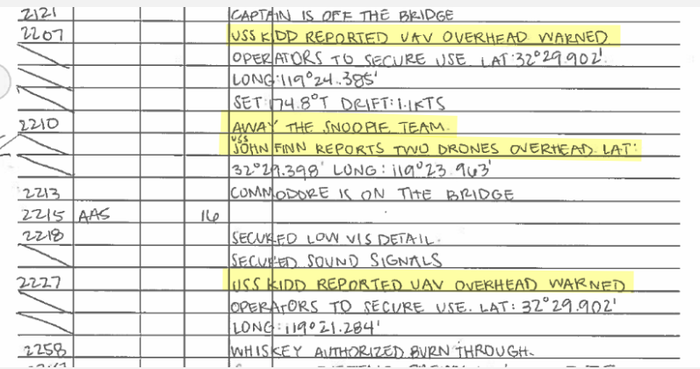 2121 CAPTAIN IS OFF THE BRIDGE
2207 USS KIDD REPORTED UAV OVERHEAD WARNED
OPERATORS TO SECURE USE LAT:32°29.902'
LONG:119°24.385'
SET:174.8°T DRIFT:1.1KTS
2210 AWAY THE SNOOPIE TEAM.
USS
JOHN FINN REPORTS TWO DRONES OVERHEAD. LAT:
32°29.398' LONG: 119°23.963'
2213 COMMODORE IS ON THE BRIDGE
2215 AAS 16
2218 SECURED LOW VIS DETAIL.
SECURED SOUND SIGNALS
2227 USS KIDD REPORTED UAV OVERHEAD WARNED
OPERATORS TO SECURE USE. LAT: 32°29.902'
LONG:119°21.284'
2258 WHISKEY AUTHORIZED BURN THROUGH.